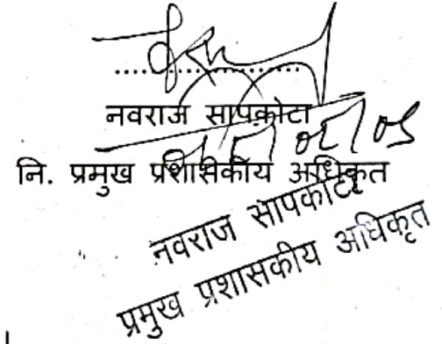 नवराज सापकोटा
नि. प्रमुख प्रशासकीय अधिकृत
नवराज सापकोटा
प्रमुख प्रशासकीय अधिकृत